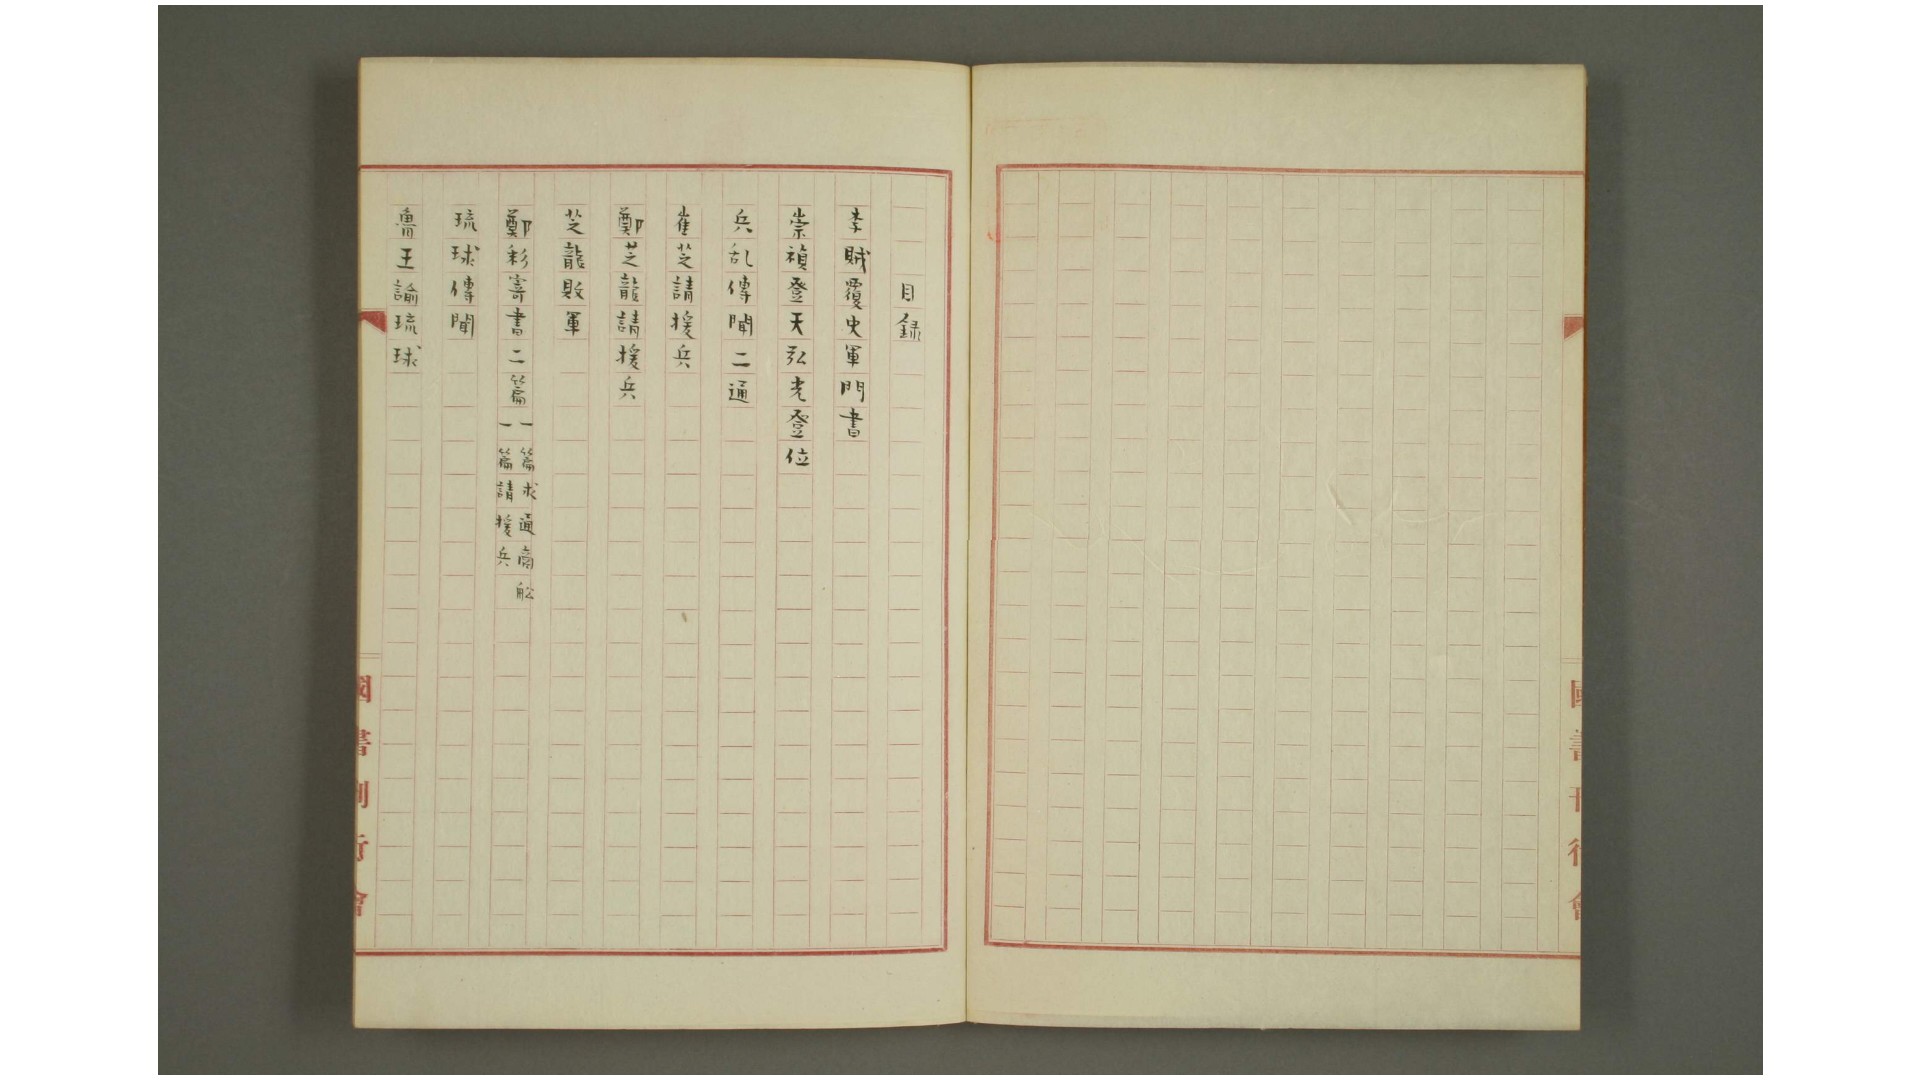 國書刊行會
目録
李賊覆史軍門書
崇禎登天弘光登位
兵乱傳聞二通
崔芝請援兵
鄭芝龍請援兵
芝龍敗軍
鄭彩寄書二篇
一篇求通商舩
一篇請援兵
琉球傳聞
魯王諭琉球
國書刊行會